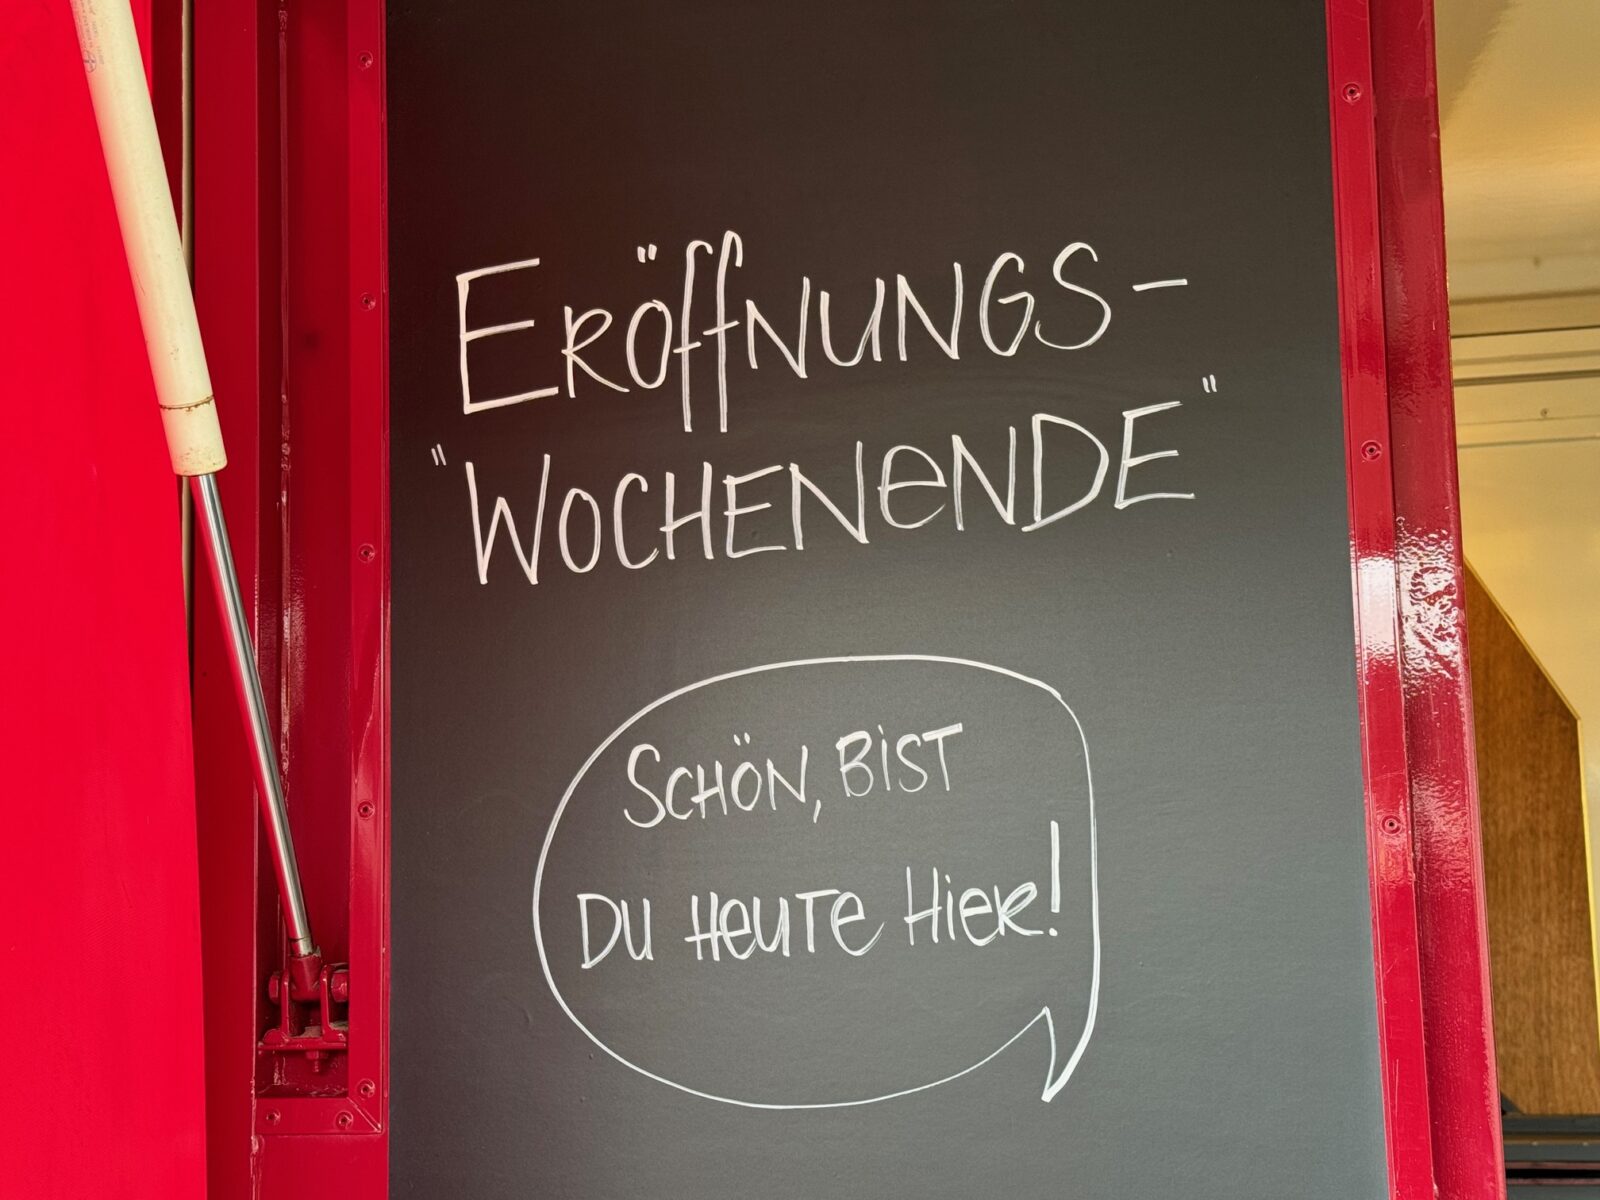 ERÖffNUNGS-
"WOCHENeNDE"
SCHÖN, BiST
DU HeUTe HieR!